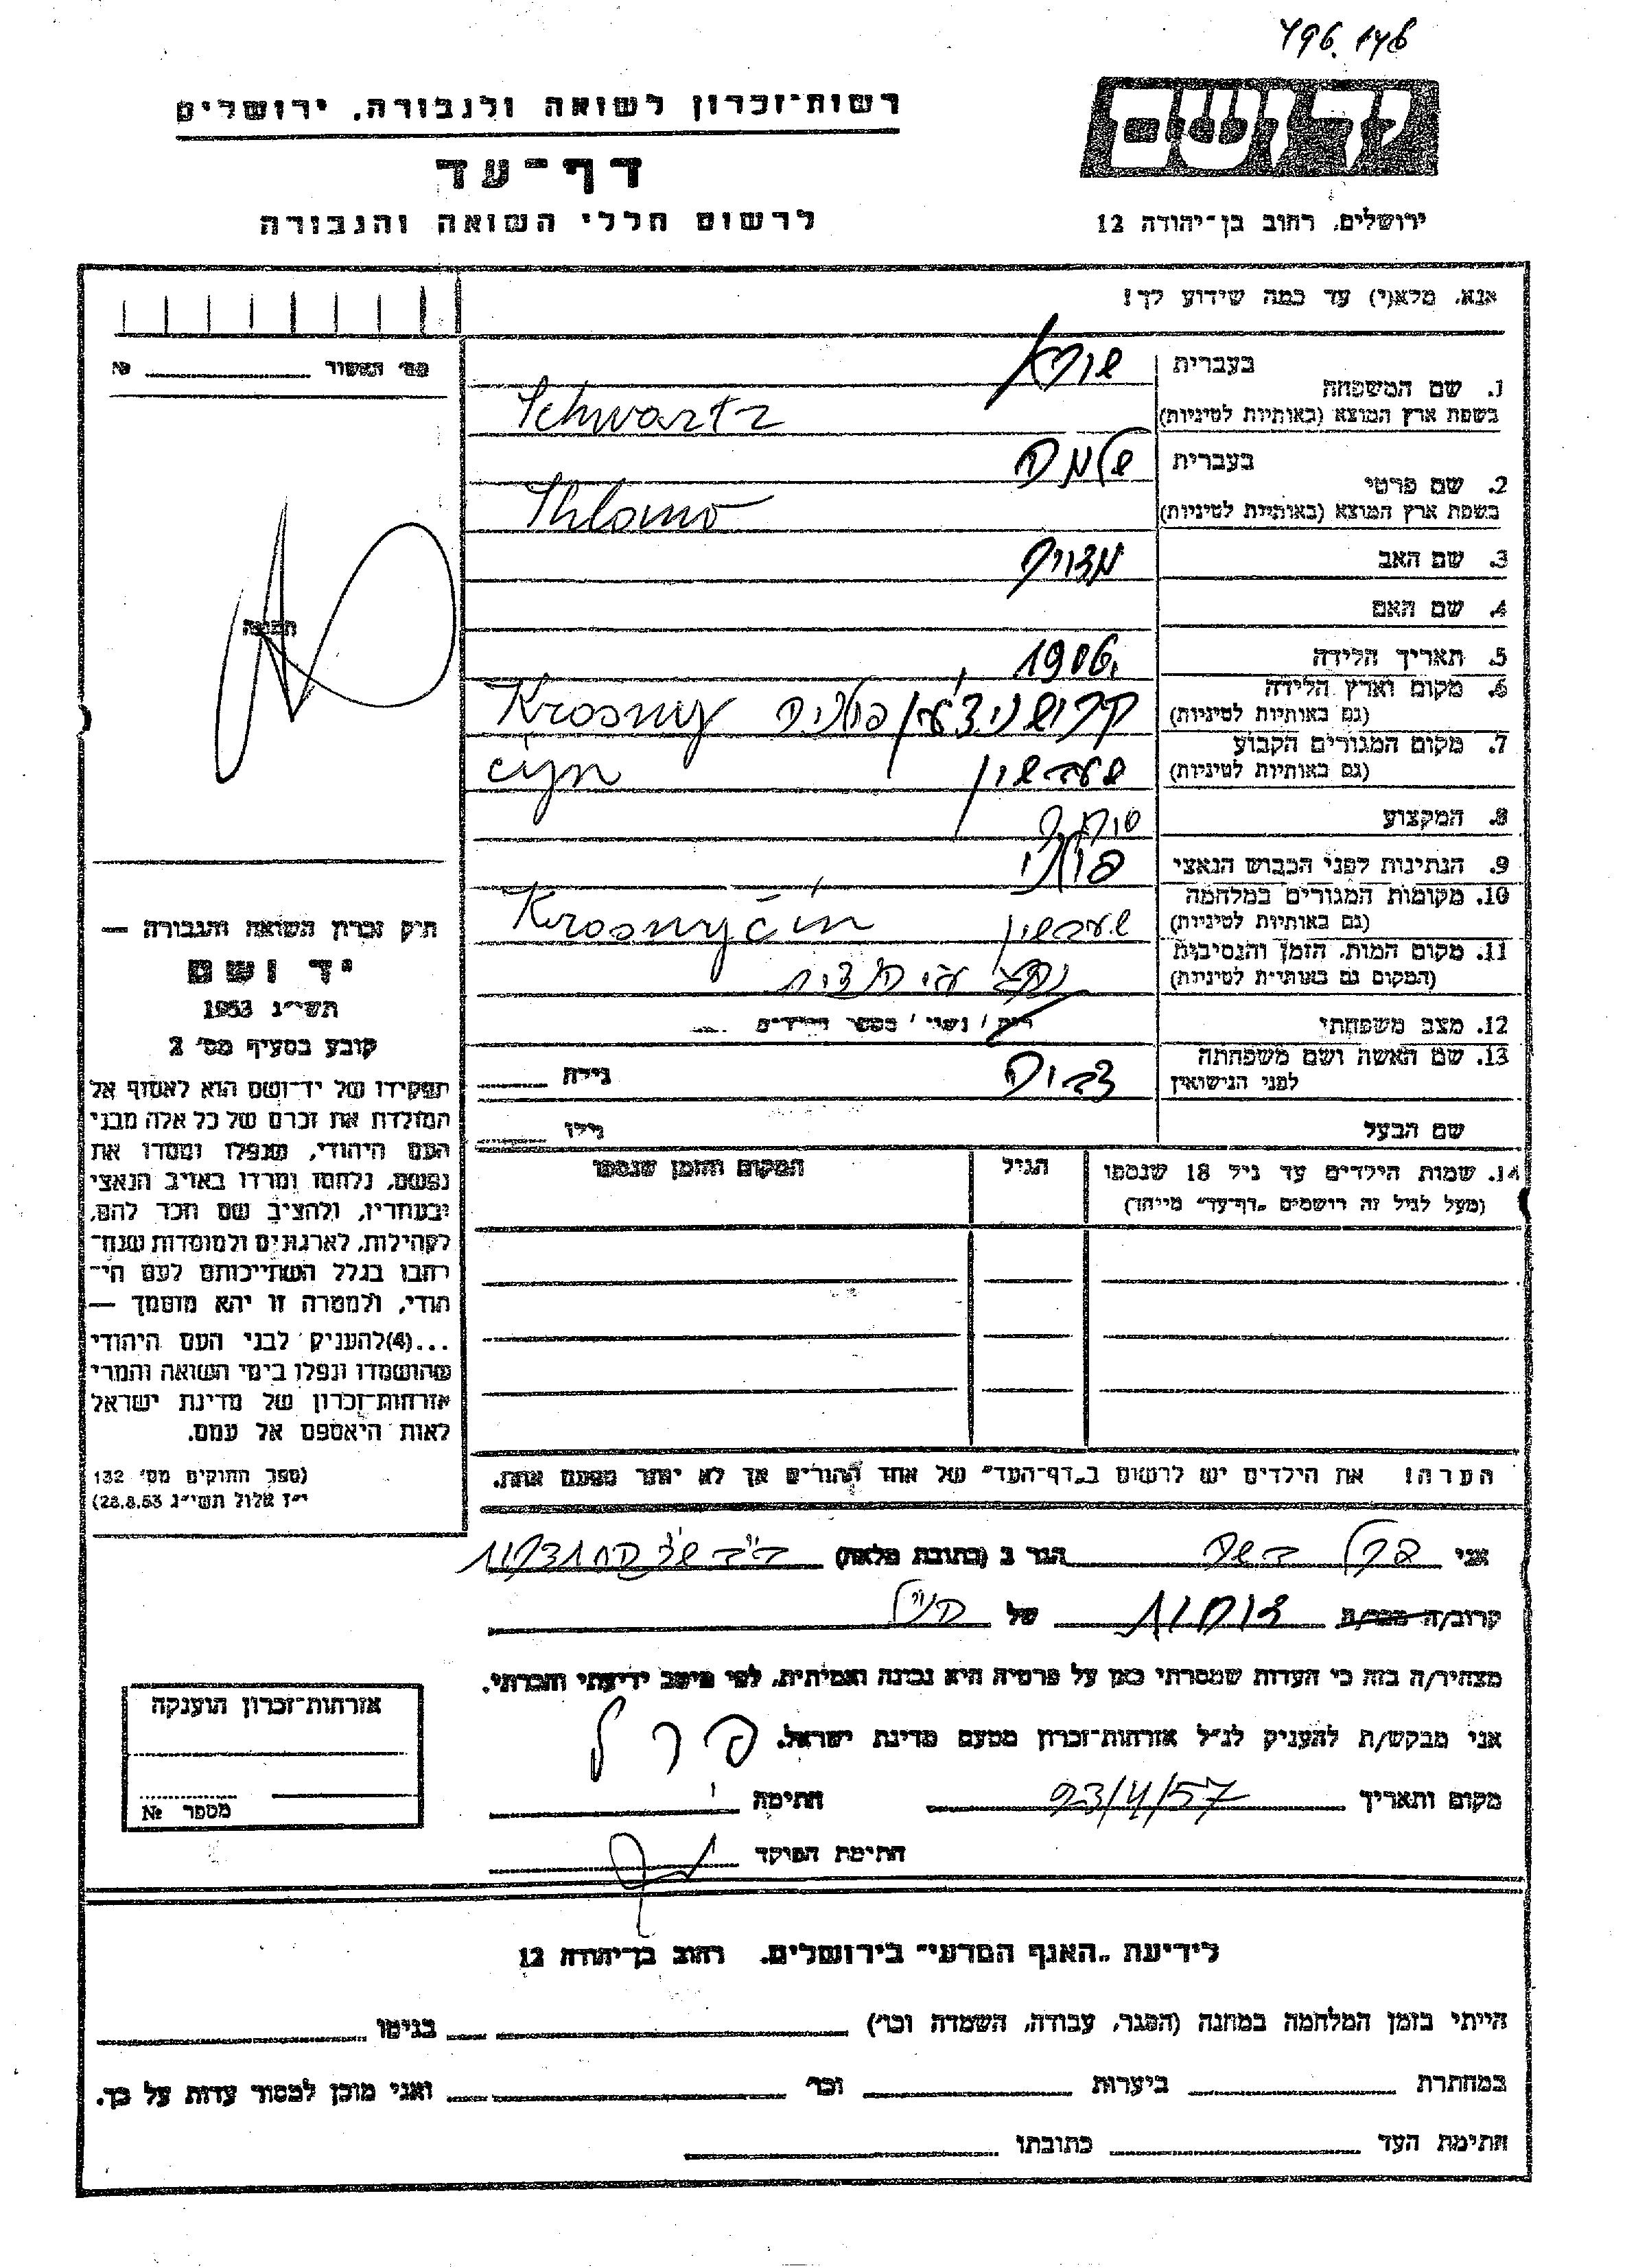 496.146
רשות־זכרון לשואה ולגבורה, ירושלים
דף־עד
לרשום חללי השואה והגבורה
יד ושם
ירושלים, רחוב בן־יהודה 12
אנא, מלא(י) עד כמה שידוע לך!
מס׳ האשור № 
1. שם המשפחה
בעברית שורץ
בשפת ארץ המוצא (באותיות לטיניות) Schwartz
2. שם פרטי
בעברית שלמה
בשפת ארץ המוצא (באותיות לטיניות) Shlomo
3. שם האב
4. שם האם
5. תאריך הלידה 1906
6. מקום וארץ הלידה
(גם באותיות לטיניות) פולניה Krosny
7. מקום המגורים הקבוע
(גם באותיות לטיניות) cyn
8. המקצוע סוחר
9. הנתינות לפני הכבוש הנאצי פולני
10. מקומות המגורים במלחמה
(גם באותיות לטיניות) Krosnyčin
11. מקום המות, הזמן והנסיבות
(המקום גם באותיות לטיניות)
12. מצב משפחתי רוק / נשוי / מספר הילדים
13. שם האשה ושם משפחתה
לפני הנישואין גילה
שם הבעל גילו
14. שמות הילדים עד גיל 18 שנספו
(מעל לגיל זה רושמים „דף־עד" מיוחד)
הגיל
המקום והזמן שנספו
הערה! את הילדים יש לרשום ב„דף־העד" של אחד ההורים אך לא יותר מפעם אחת.
תמונה
חוק זכרון השואה והגבורה —
יד ושם
תשי״ג 1953
קובע בסעיף מס׳ 2
תפקידו של יד־ושם הוא לאסוף אל
המולדת את זכרם של כל אלה מבני
העם היהודי, שנפלו ומסרו את
נפשם, נלחמו ומרדו באויב הנאצי
ובעוזריו, ולהציב שם וזכר להם,
לקהילות, לארגונים ולמוסדות שנח־
רבו בגלל השתייכותם לעם הי־
הודי, ולמטרה זו יהא מוסמך —
...(4)להעניק לבני העם היהודי
שהושמדו ונפלו בימי השואה והמרי
אזרחות־זכרון של מדינת ישראל
לאות היאספם אל עמם.
(ספר החוקים מס׳ 132
י״ז אלול תשי״ג 28.8.53)
אני פרל הגר ב (כתובת מלאה)
קרוב/ה מכר/ת של הנ״ל
מצהיר/ה בזה כי העדות שמסרתי כאן על פרטיה היא נכונה ואמיתית, לפי מיטב ידיעתי והכרתי.
אני מבקש/ת להעניק לנ״ל אזרחות־זכרון מטעם מדינת ישראל.
מקום ותאריך 23/4/57 חתימה פרל
חתימת הפוקד
אזרחות־זכרון הוענקה
מספר №
לידיעת „האגף המדעי" בירושלים, רחוב בן־יהודה 12
הייתי בזמן המלחמה במחנה (הסגר, עבודה, השמדה וכו׳) בגיטו
במחתרת ביערות וכו׳ ואני מוכן למסור עדות על כך.
חתימת העד כתובתו